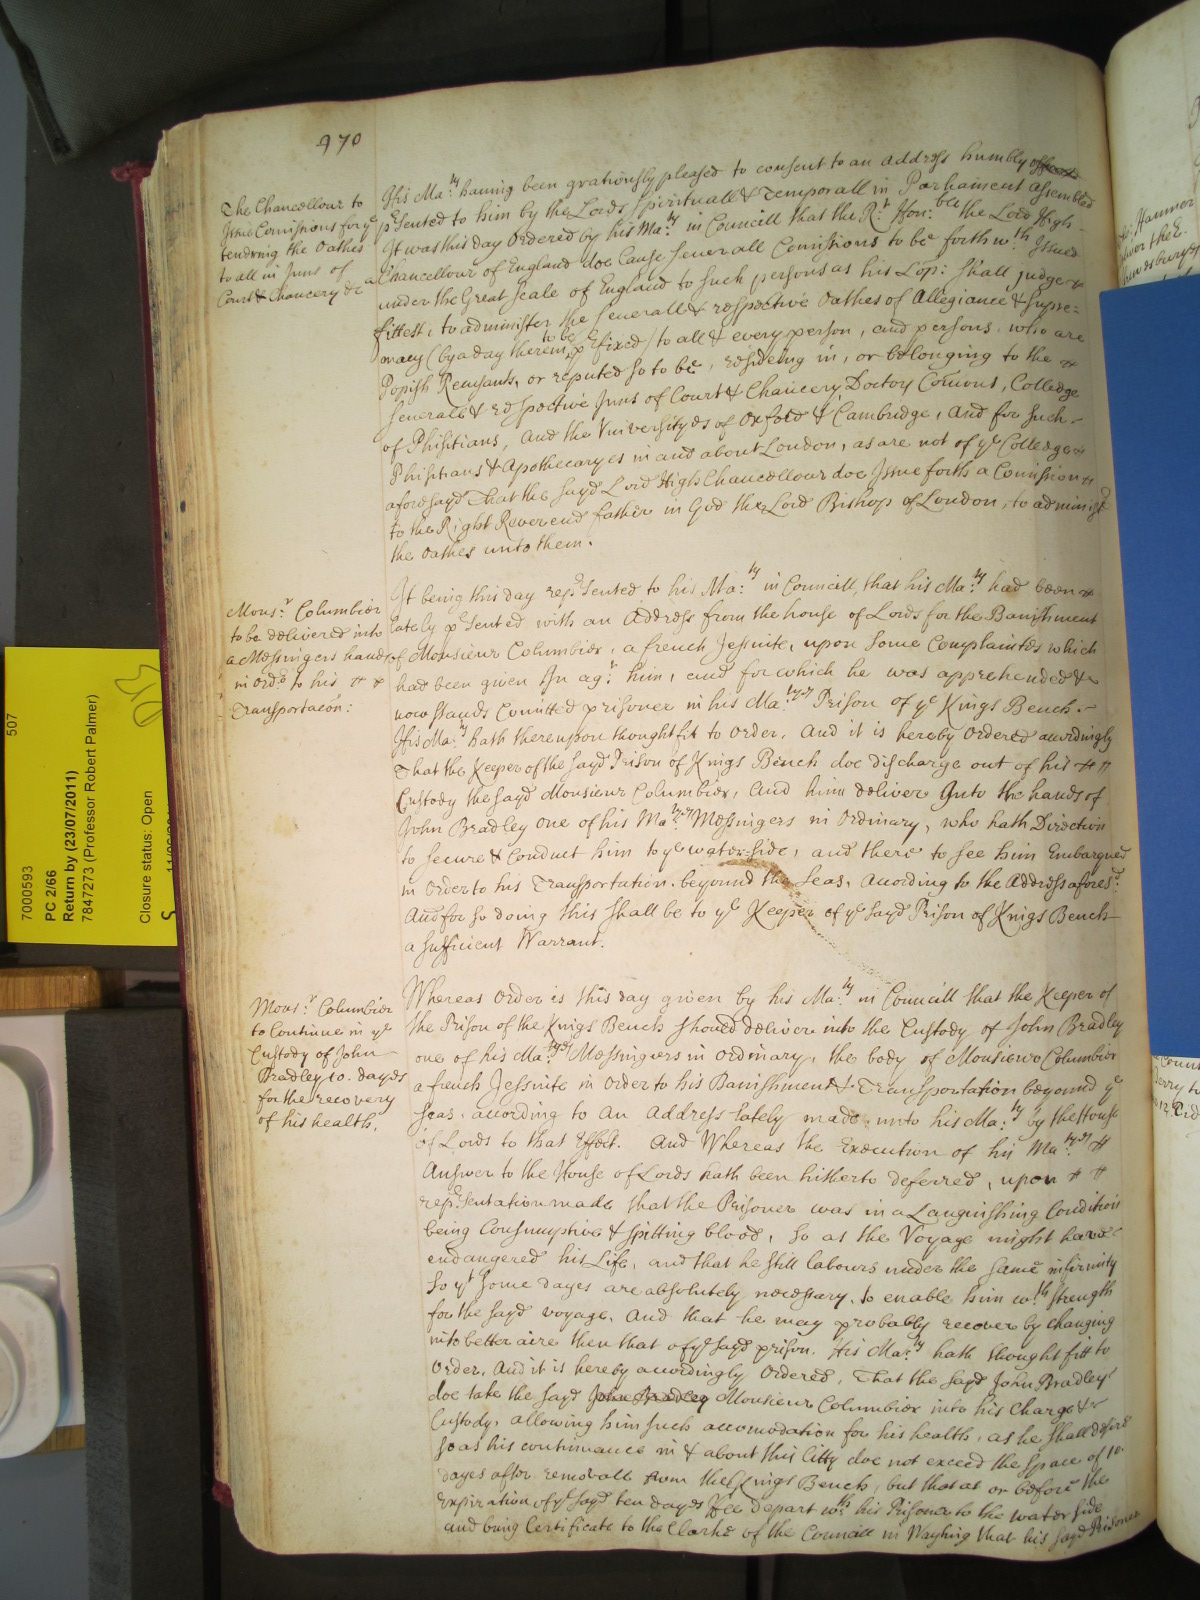 970
The Chancellour to
Issue Comissions for ye
tendring the Oathes
to all in Inns of
Court & Chancery &ca
His Ma:ty hauing been gratiously pleased to consent to an Address humbly
pesented to him by the Lords Spirituall & Temporall in Parliament assembled
It was this day Ordered by his Ma:ty in Councill that the Rt Hon:ble the Lord High
Chancellour of England doe Cause Seuerall Comissions to be forthwth Issued
under the Great Seale of England to such persons as his Lopp: shall judge
fittest, to administer the Seuerall & respective Oathes of Allegiance & Supre=
macy (by a day therein to be pefixed) to all & every person, and persons, who are
Popish Recusants, or reputed so to be, resideing in, or belonging to the
Seuerall & respective Inns of Court & Chancery Doctors Comons, Colledge
of Phisitians, And the Vniversityes of Oxford & Cambridge, And for such
Phisitians & Apothecaryes in and about London, as are not of ye Colledge
aforesayd That the sayd Lord High Chancellour doe Issue forth a Comission
to the Right Reverend father in God the Lord Bishop of London, to administ
the Oathes unto them.
Mons:r Columbier
to be delivered into
a Messingers hands
in ordr to his
Transportacon:
It being this day repesented to his Ma:ty in Councill, that his Ma:ty had been
lately pesented with an Address from the house of Lords for the Banishment
of Monsieur Columbier, a french Jessuite, upon some Complaintes which
had been given In agt him, and for which he was apprehended &
now stands Comitted prisoner in his Ma:tys Prison of ye Kings Bench.
His Ma:ty hath thereupon thought fit to Order, And it is hereby Ordered accordingly
That the Keeper of the sayd Prison of Kings Bench doe discharge out of his
Custody the sayd Monsieur Columbier, And him deliver Into the hands of
John Bradley one of his Ma:tys Messingers in Ordinary, who hath Direction
to secure & Conduct him to ye water side, and there to see him Embarqued
in Order to his Transportation beyound the Seas, According to the Address aforesd:
And for so doing this shall be to ye Keeper of ye sayd Prison of Kings Bench
a sufficient Warrant.
Mons:r Columbier
to Continue in ye
Custody of John
Bradley 10. dayes
for the recovery
of his health.
Whereas Order is this day given by his Ma:ty in Councill that the Keeper of
the Prison of the Kings Bench should deliver into the Custody of John Bradley
one of his Ma:tys Messingers in ordinary, the body of Monsieur Columbier
a french Jessuite in Order to his Banishment & Transportation beyound ye
Seas, according to an Address lately made unto his Ma:ty by the House
of Lords to that Effect. And Whereas the Execution of his Ma:tys
Answer to the House of Lords hath been hitherto deferred, upon
repesentation made that the Prisoner was in a Languishing Condition
being Consumptive & spitting blood, so as the Voyage might have
endangered his Life, and that he still labours under the same infirmity
so yt some dayes are absolutely necessary, to enable him wth strength
for the sayd voyage, And that he may probably recover by changing
into better aire then that of ye sayd prison. His Ma:ty hath thought fitt to
Order, And it is hereby accordingly Ordered, That the sayd John Bradley
doe take the sayd John Bradley Monsieur Columbier into his Charge &
Custody, allowing him such accomodation for his health, as he shall desire
so as his continuance in & about this Citty doe not exceed the space of 10.
dayes after removall from the Kings Bench, but that at or before the
expiration of ye sayd ten dayes Hee depart wth his Prisoner to the water side
and bring Certificate to the Clarke of the Councill in Wayting that his sayd Prisoner
507
7000593
PC 2/66
Return by (23/07/2011)
7847273 (Professor Robert Palmer)
Closure status: Open